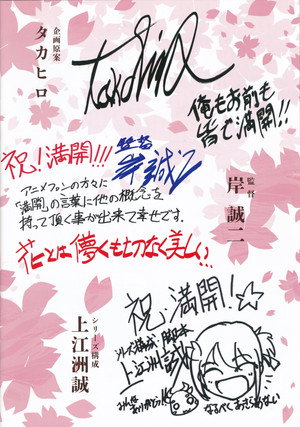 企画原案
タカヒロ
俺もお前も
皆で満開!!
監督
岸誠二
祝!満開!!!
監督
岸誠二
アニメファンの方々に
「満開」の言葉に他の概念を
持って頂く事が出来て幸せです。
花とは儚くも切なく美しい…
シリーズ構成
上江洲誠
祝・満開!☆
シリーズ構成・脚本
上江洲誠
みんな
ありがとう!